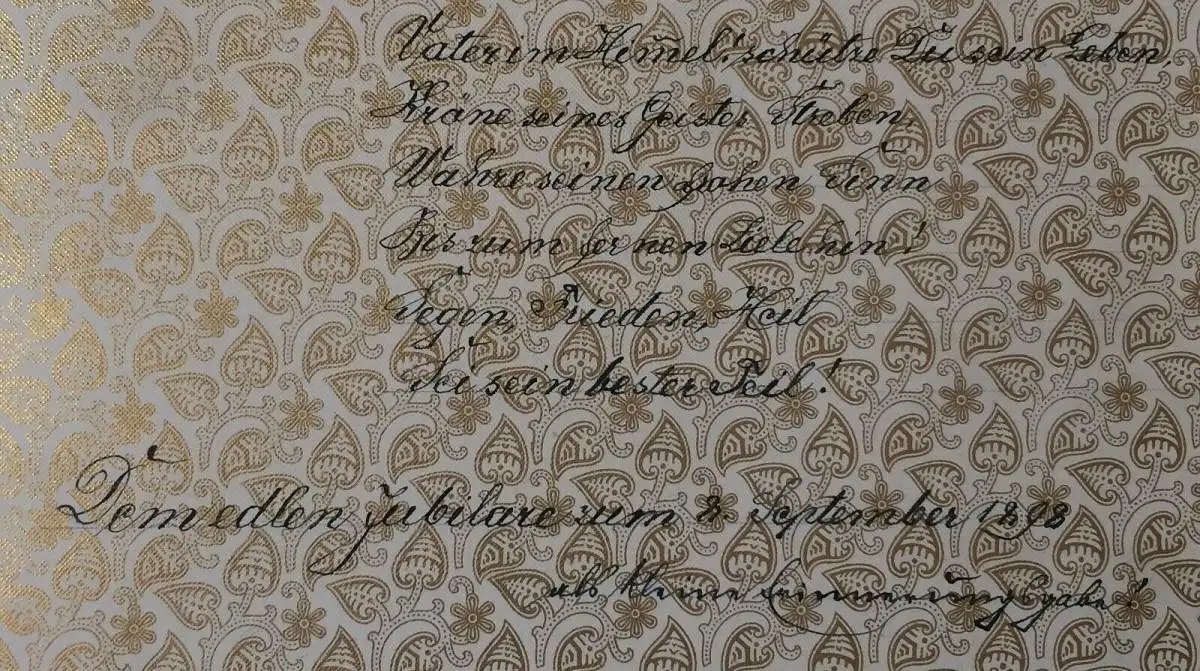 Vater im Him̅el! schütze Du sein Leben,
Kröne seines Geistes Streben,
Wahre seinen hohen Sinn
Bis zum fernen Ziele hin!
Segen, Frieden, Heil
Sei sein bester Teil!
Dem edlen Jubilare zum 2 September 1892
als kleine Erinnerungsgabe!